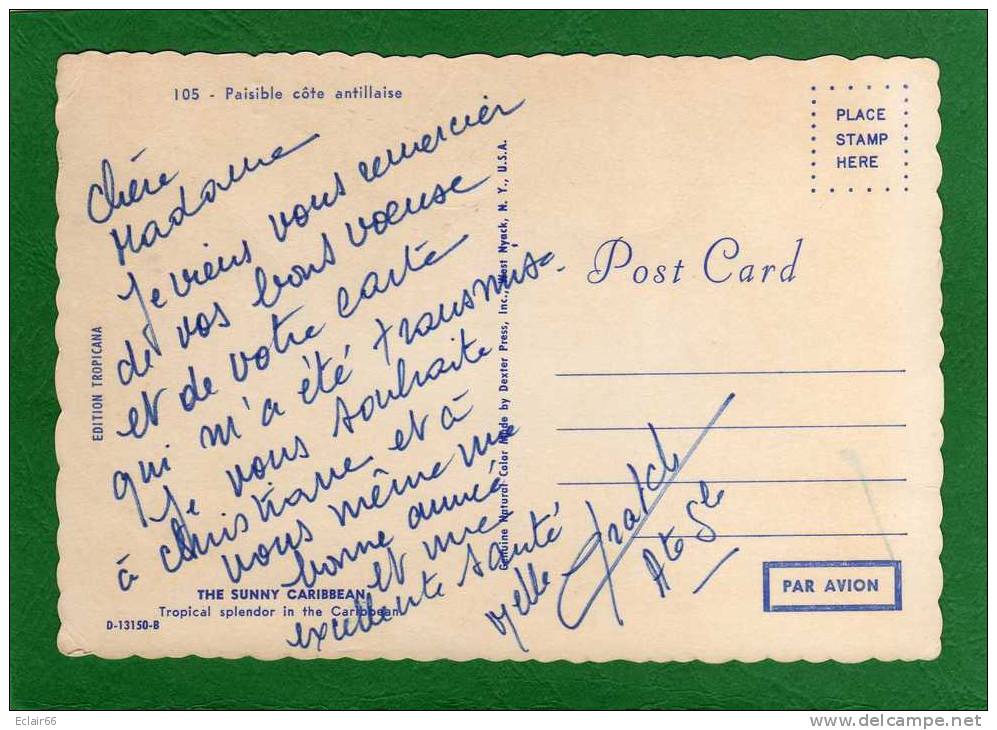 105 - Paisible côte antillaise
Chère
Madame
Je viens vous remercier
de vos bons voeuse
et de votre carte
qui m'a été transmise.
Je vous souhaite
à Christiane et à
vous même une
bonne année
et une
excellente santé
EDITION TROPICANA
THE SUNNY CARIBBEAN
Tropical splendor in the Caribbean
D-13150-B
Genuine Natural Color Made by Dexter Press, Inc., West Nyack, N. Y., U.S.A.
PLACE
STAMP
HERE
Post Card
PAR AVION
Eclair66
delcampe.net